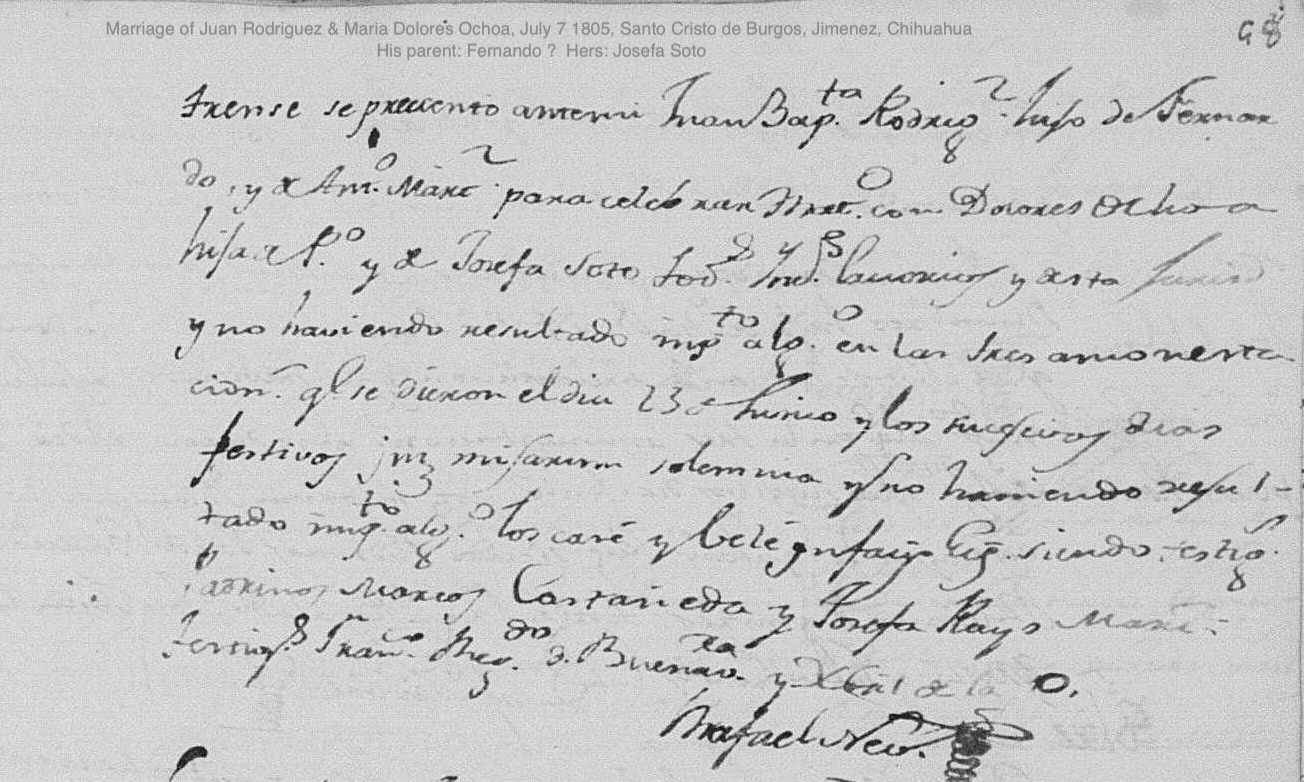 Marriage of Juan Rodriguez & Maria Dolores Ochoa, July 7 1805, Santo Cristo de Burgos, Jimenez, Chihuahua
His parent: Fernando ? Hers: Josefa Soto
68
trense se precento antemi Juan Bap.ta Rodrig.z hijo de Fernan
do, y de Ant.o Marz para celebrar Mat.o con Dolores Ochoa
hija de P.o y de Josefa Soto tod.s y desta
y no haviendo resultado imp.to alg.o en las tres amonesta
cion.s q.e se dieron el dia 23 de Junio y los sucesivos dias
festivos missarum solemnia y no haviendo resul-
tado imp.to alg.o los casé y velé siendo testig.s
Padrinos Marcos Castañeda y Josefa Rays
testig.s Fran.co de Buenav.ra y de la O.
Rafael Nev.